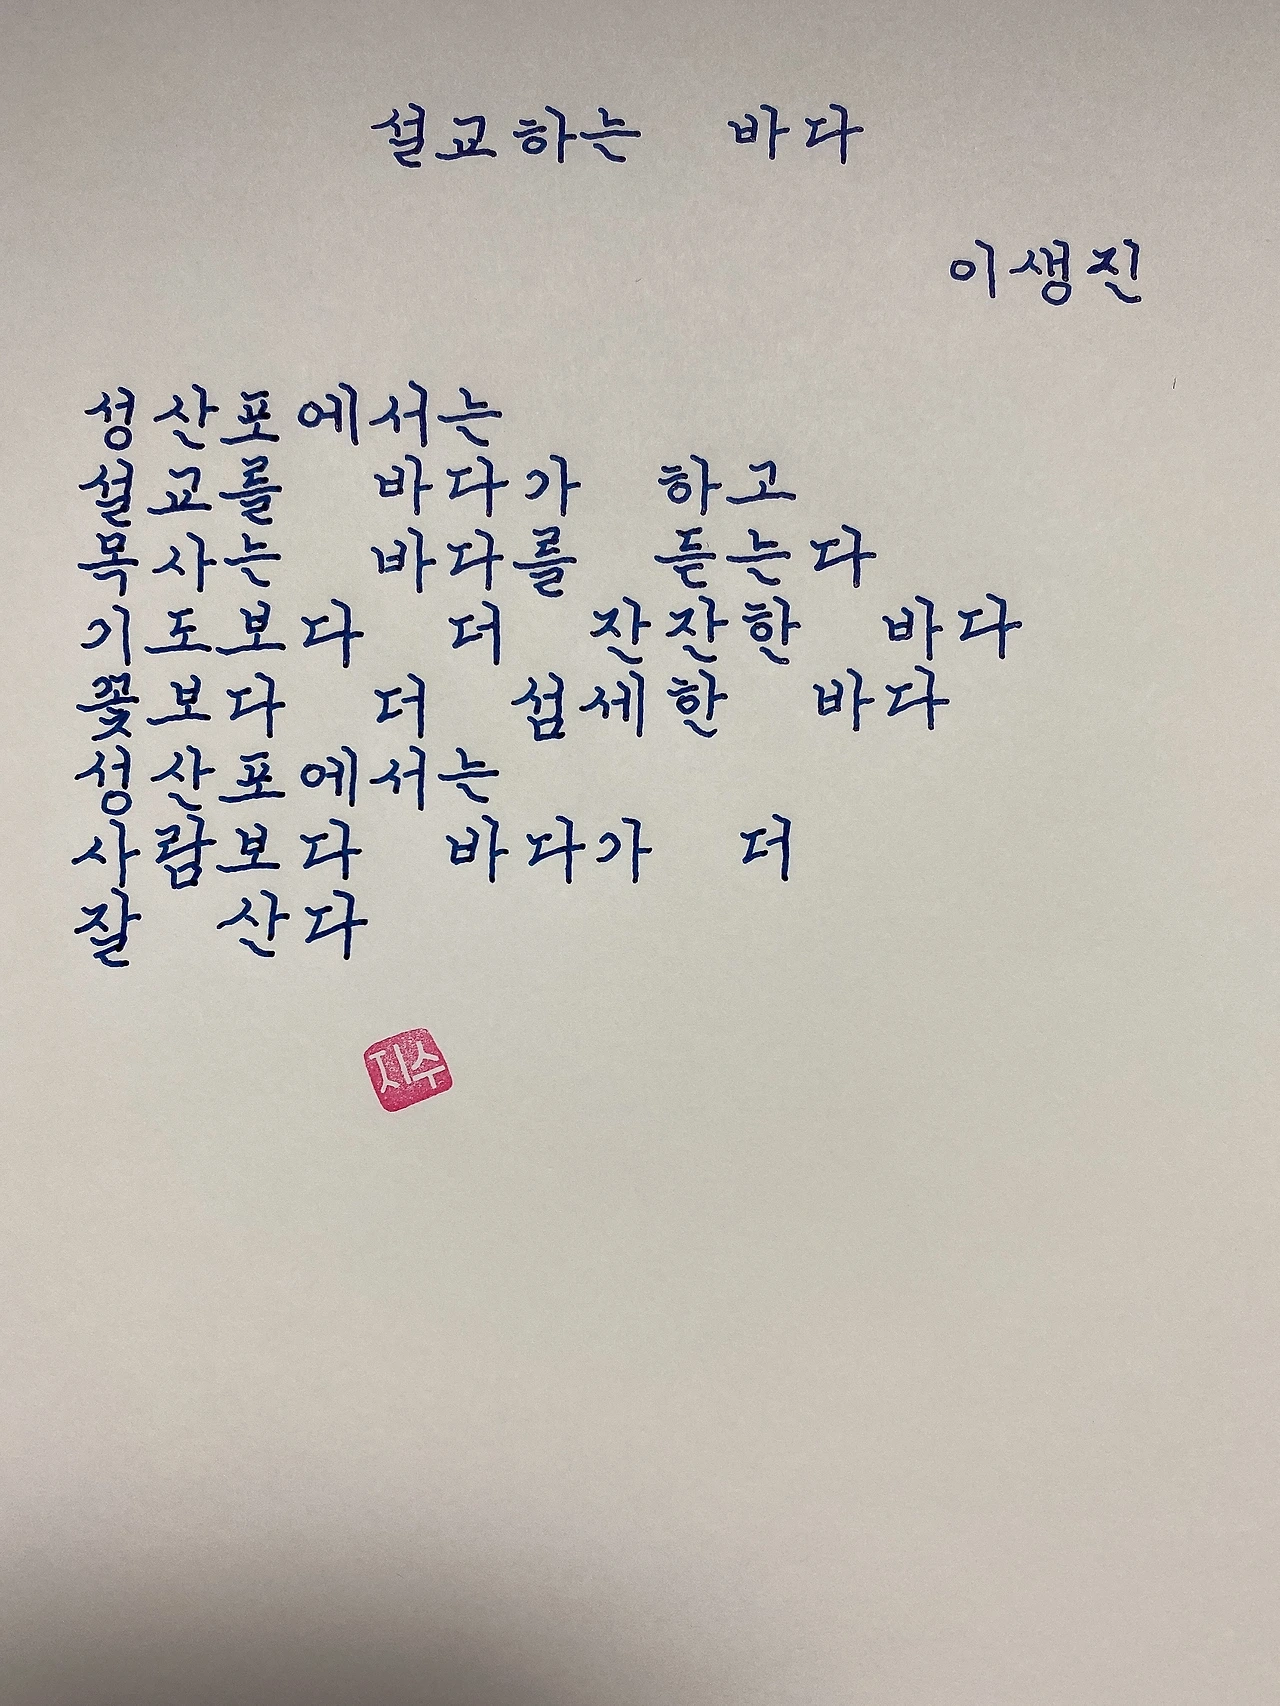 설교하는 바다
이생진
성산포에서는
설교를 바다가 하고
목사는 바다를 듣는다
기도보다 더 잔잔한 바다
꽃보다 더 섬세한 바다
성산포에서는
사람보다 바다가 더
잘 산다
지수